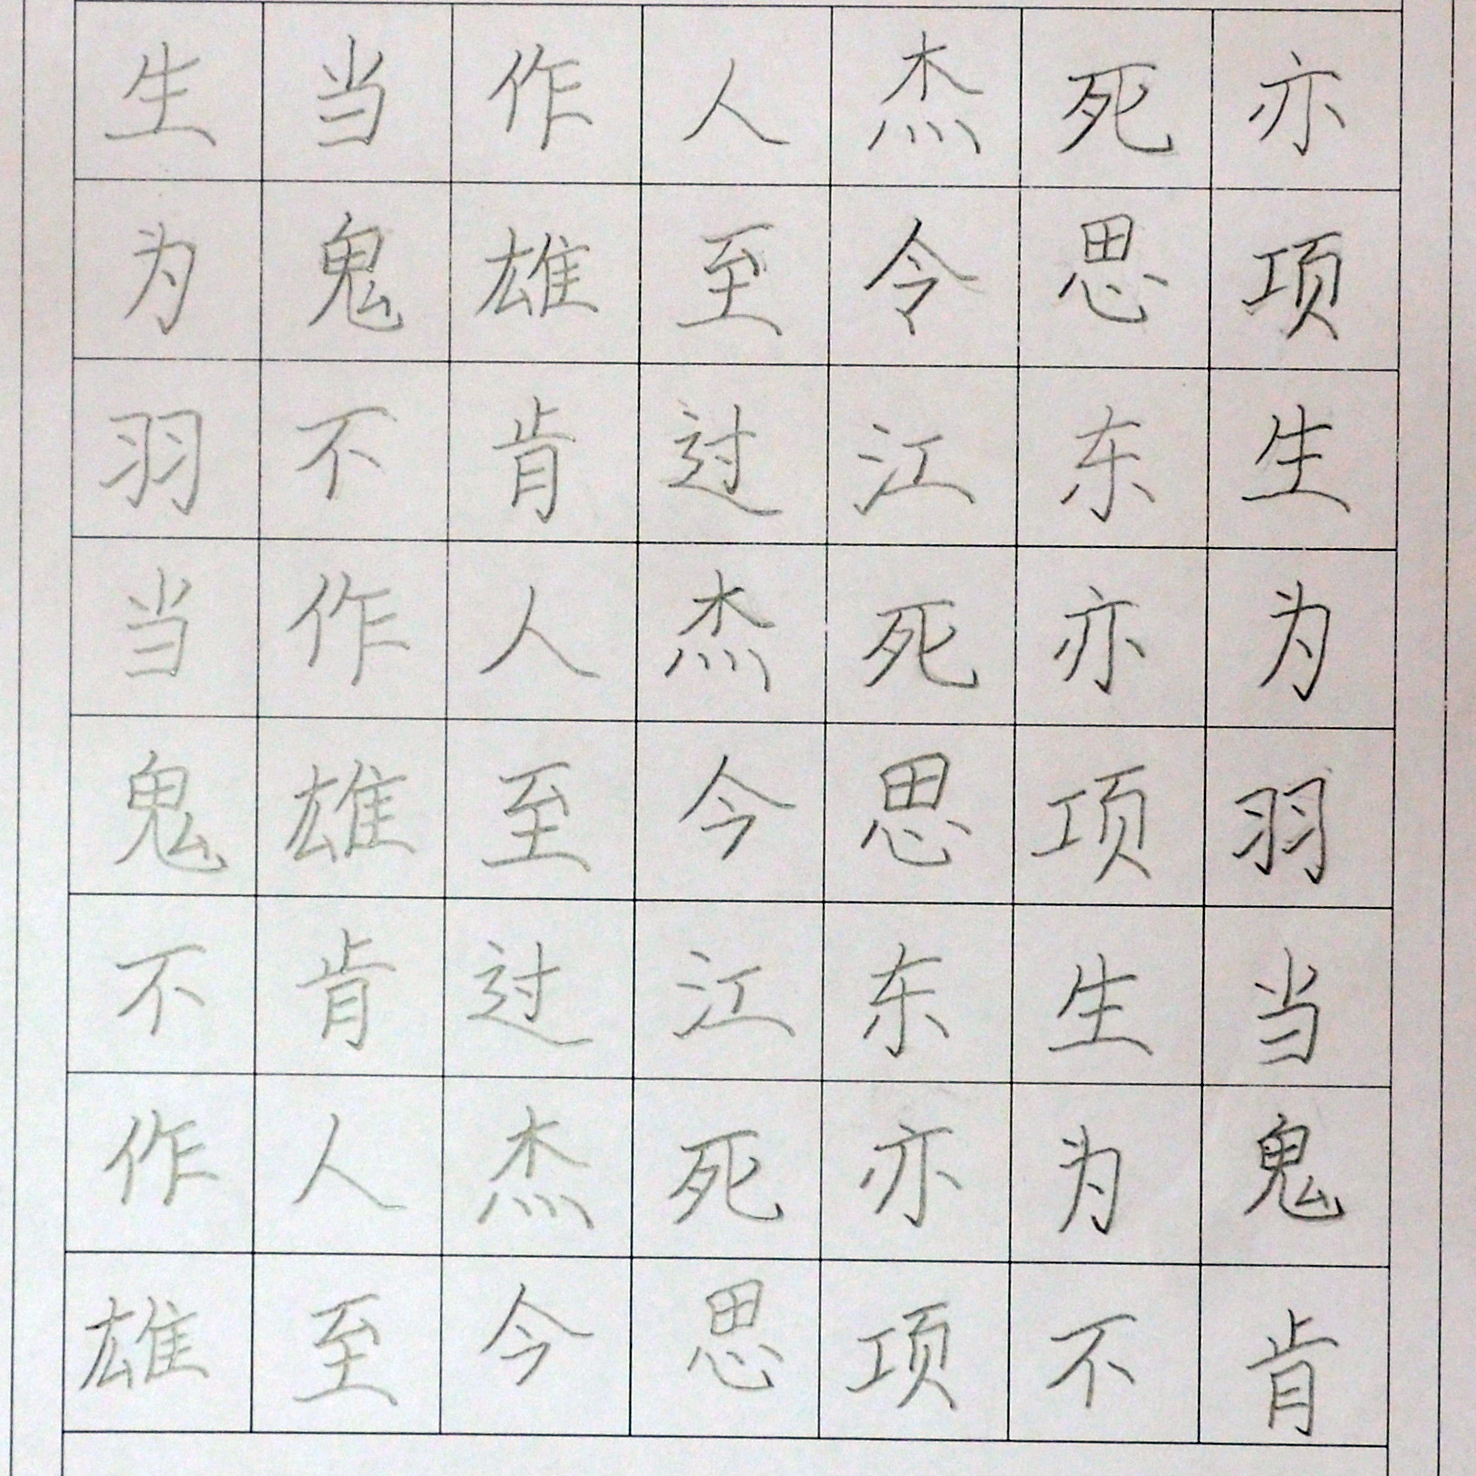 生当作人杰死亦
为鬼雄至令思项
羽不肯过江东生
当作人杰死亦为
鬼雄至今思项羽
不肯过江东生当
作人杰死亦为鬼
雄至今思项不肯